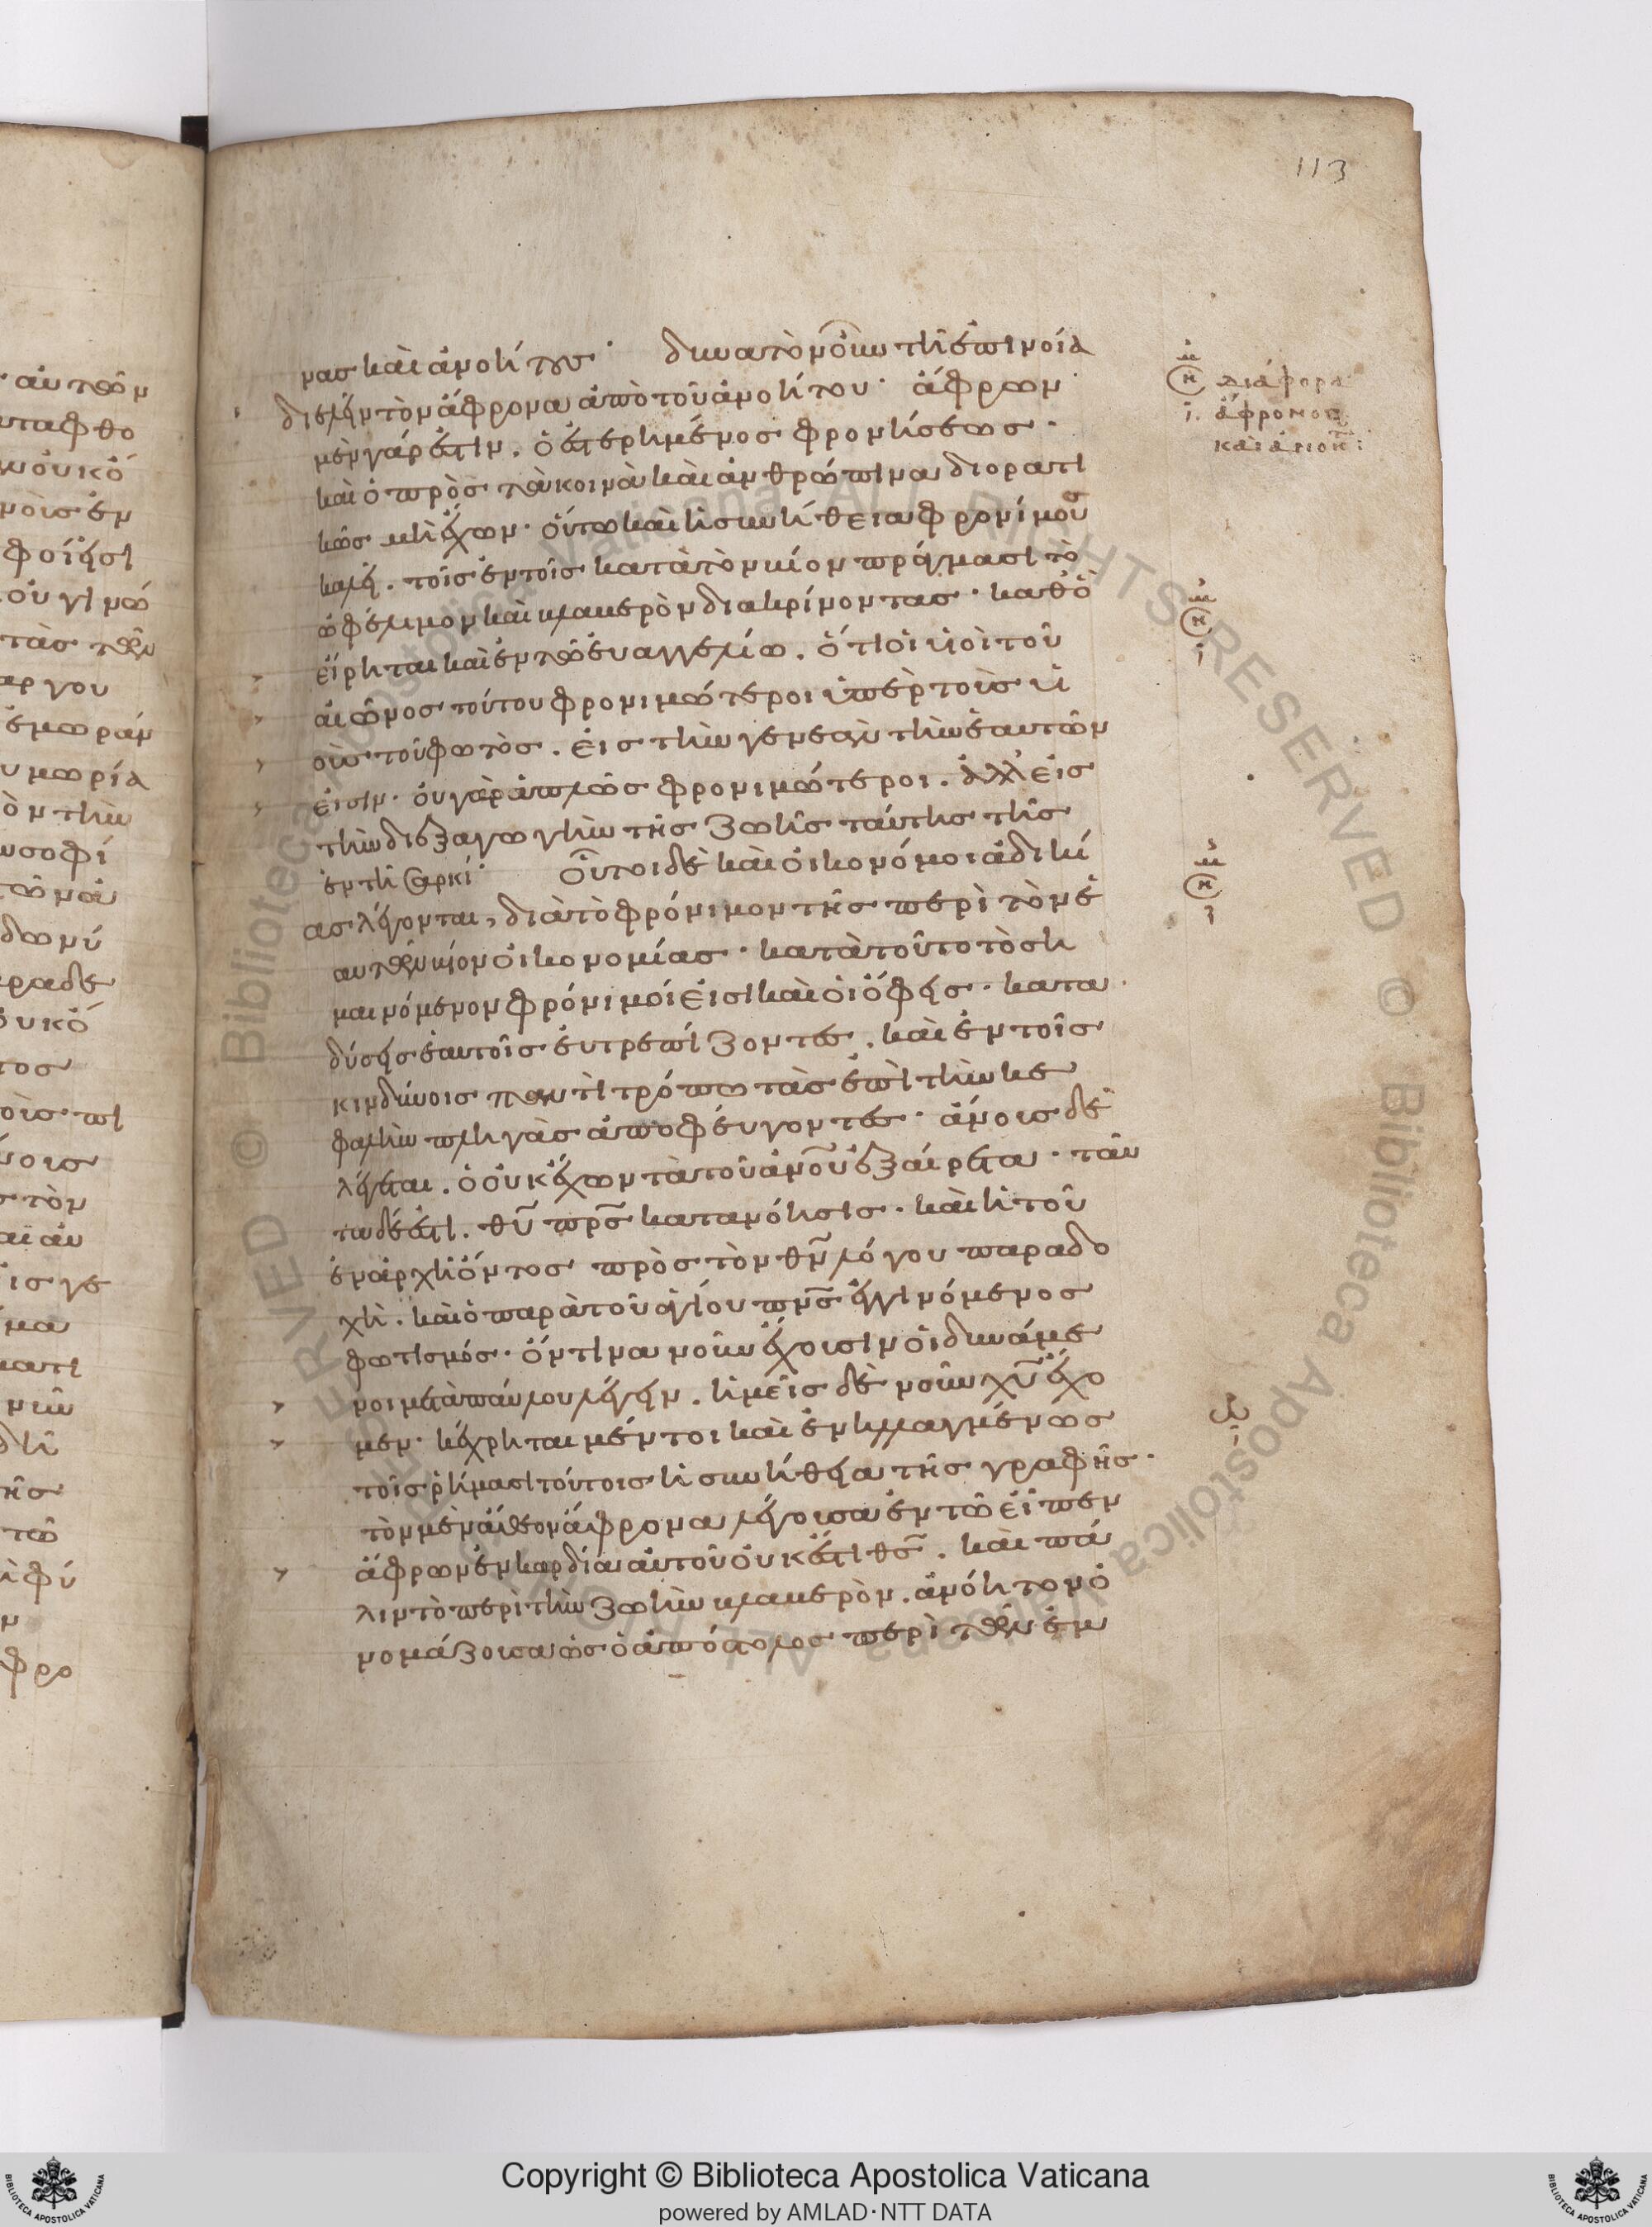 113
νας καὶ ἀνοήτους· δυνατὸν οὖν τῆ ἐπινοία
διελεῖν τὸν ἄφρονα ἀπὸ τοῦ ἀνοήτου· ἄφρων
μὲν γάρ ἐστιν. ὁ ἐστερημένος φρονήσεως·
καὶ ὁ πρὸς τὰ κοινὰ καὶ ἀνθρώπινα διορατι
κῶς μὴ ἔχων· οὕτω καὶ ἡ συνήθεια φρονίμους
καλεῖ. τοῖς ἐν τοῖς κατὰ τὸν βίον πράγμασι τὸ
ὠφέλιμον καὶ βλαβερὸν διακρίνοντας· καθὸ
εἴρηται καὶ ἐν τῶ εὐαγγελίω. ὅτι οἱ υἱοὶ τοῦ
αἰῶνος τούτου φρονιμώτεροι ὑπὲρ τοὺς υἱ
οὺς τοῦ φωτὸς. εἰς τὴν γενεὰν τὴν ἑαυτῶν
εἰσιν· οὐ γὰρ ἁπλῶς φρονιμώτεροι. ἀλλ εἰς
τὴν διεξαγωγὴν τῆς ζωῆς ταύτης τῆς
ἐν τῆ σαρκί· οὗτοι δὲ καὶ οἰκονόμοι ἀδικί
ας λέγονται, διὰ τὸ φρόνιμον τῆς περὶ τὸν ἑ
αυτῶν βίον οἰκονομίας· κατὰ τοῦτο τὸ ση
μαινόμενον φρόνιμοί εἰσι καὶ οἱ ὄφεις· κατα
δύσεις ἑαυτοῖς εὐτρεπίζοντες. καὶ ἐν τοῖς
κινδύνοις παντὶ τρόπω τὰς ἐπὶ τὴν κε
φαλὴν πληγὰς ἀποφεύγοντες· ἄνους δὲ
λέγεται. ὁ οὐκ ἔχων τὰ τοῦ ἀνοῦ ἐξαίρετα· ταῦ
τα δέ ἐστι. θυ πρς κατανόησις· καὶ ἡ τοῦ
ἐν ἀρχῆ ὄντος πρὸς τὸν θν λόγου παραδο
χὴ. καὶ ὁ παρὰ τοῦ ἁγίου πνς ἐγγινόμενος
φωτισμός· ὅντινα νοῦν ἔχουσιν οἱ δυνάμε
νοι μετὰ παύλου λέγειν. ἡμεῖς δὲ νοῦν χυ ἔχο
μεν· κέχρηται μέντοι καὶ ἐνηλλαγμένως
τοῖς ῥήμασι τούτοις ἡ συνήθεια τῆς γραφῆς·
τὸν μὲν ἄθεον ἄφρονα λέγουσα ἐν τῶ εἶπεν
ἄφρων ἐν καρδία αὐτοῦ οὐκ ἔστι θς. καὶ πά
λιν τὸ περὶ τὴν ζωὴν βλαβερὸν. ἀνόητον ὀ
νομάζουσα ὡς ὁ ἀπόστολος περὶ τῶν ἐν
διάφορα
ἄφρονος
Copyright © Biblioteca Apostolica Vaticana
powered by AMLAD·NTT DATA